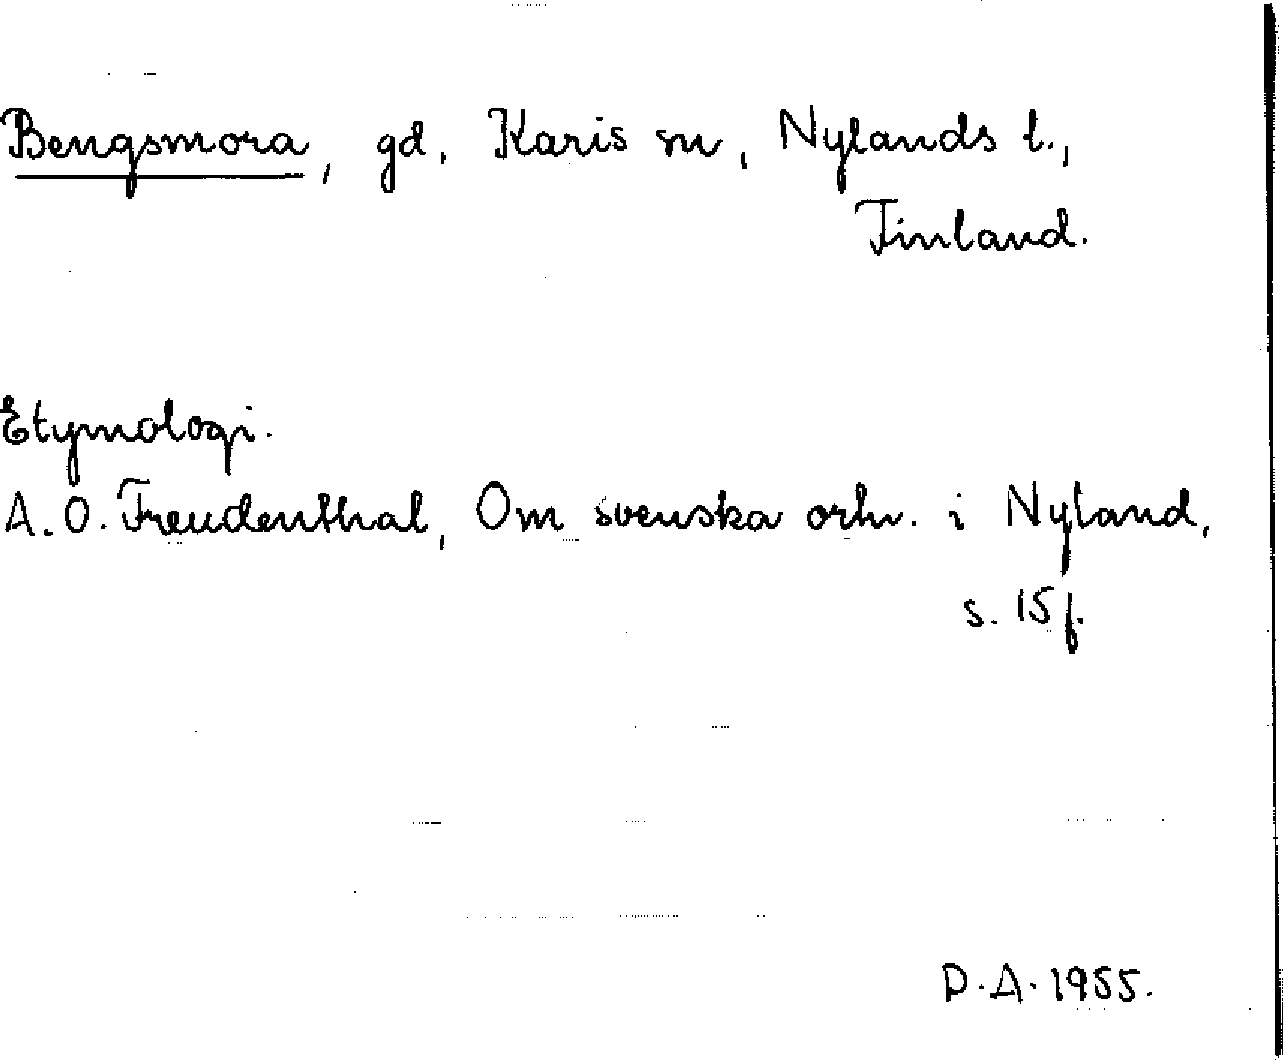 Bengsmora, gd, Karis sn, Nylands l.,
Finland.
Etymologi.
A. O. Freudenthal, Om svenska ortn. i Nyland,
s. 15 f.
D. A. 1955.